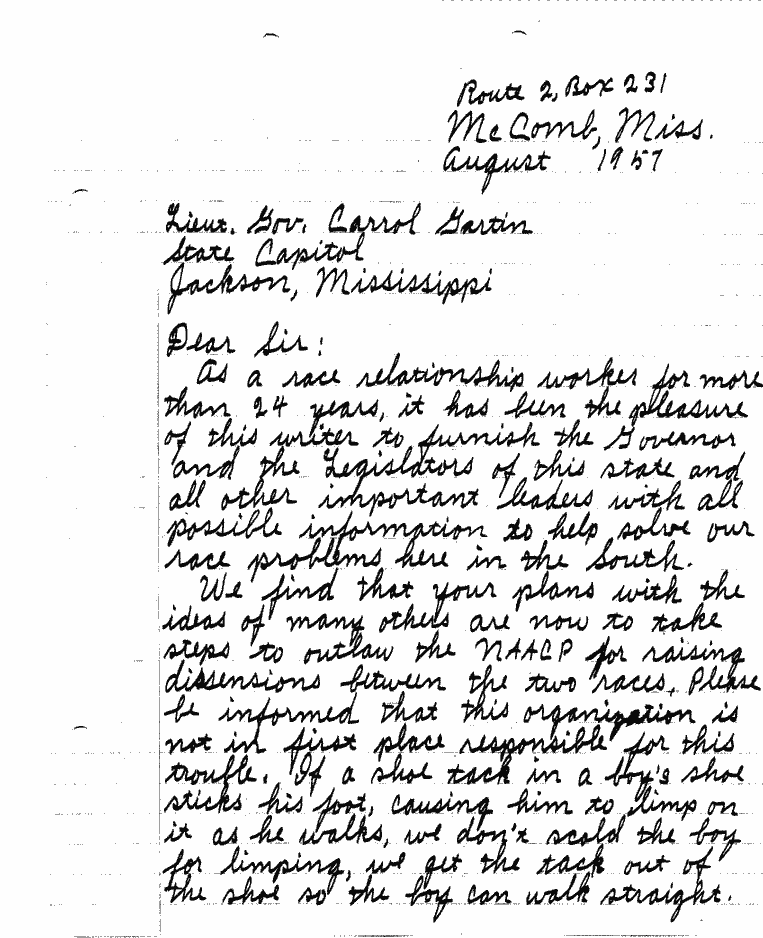 Route 2, Box 231
McComb, Miss.
August 1957
Lieut. Gov. Carrol Gartin
State Capitol
Jackson, Mississippi
Dear Sir:
As a race relationship worker for more
than 24 years, it has been the pleasure
of this writer to furnish the Governor
and the Legislators of this state and
all other important leaders with all
possible information to help solve our
race problems here in the South.
We find that your plans with the
ideas of many others are now to take
steps to outlaw the NAACP for raising
dissensions between the two races. Please
be informed that this organization is
not in first place responsible for this
trouble. If a shoe tack in a boy's shoe
sticks his foot, causing him to limp on
it as he walks, we don't scold the boy
for limping, we get the tack out of
the shoe so the boy can walk straight.